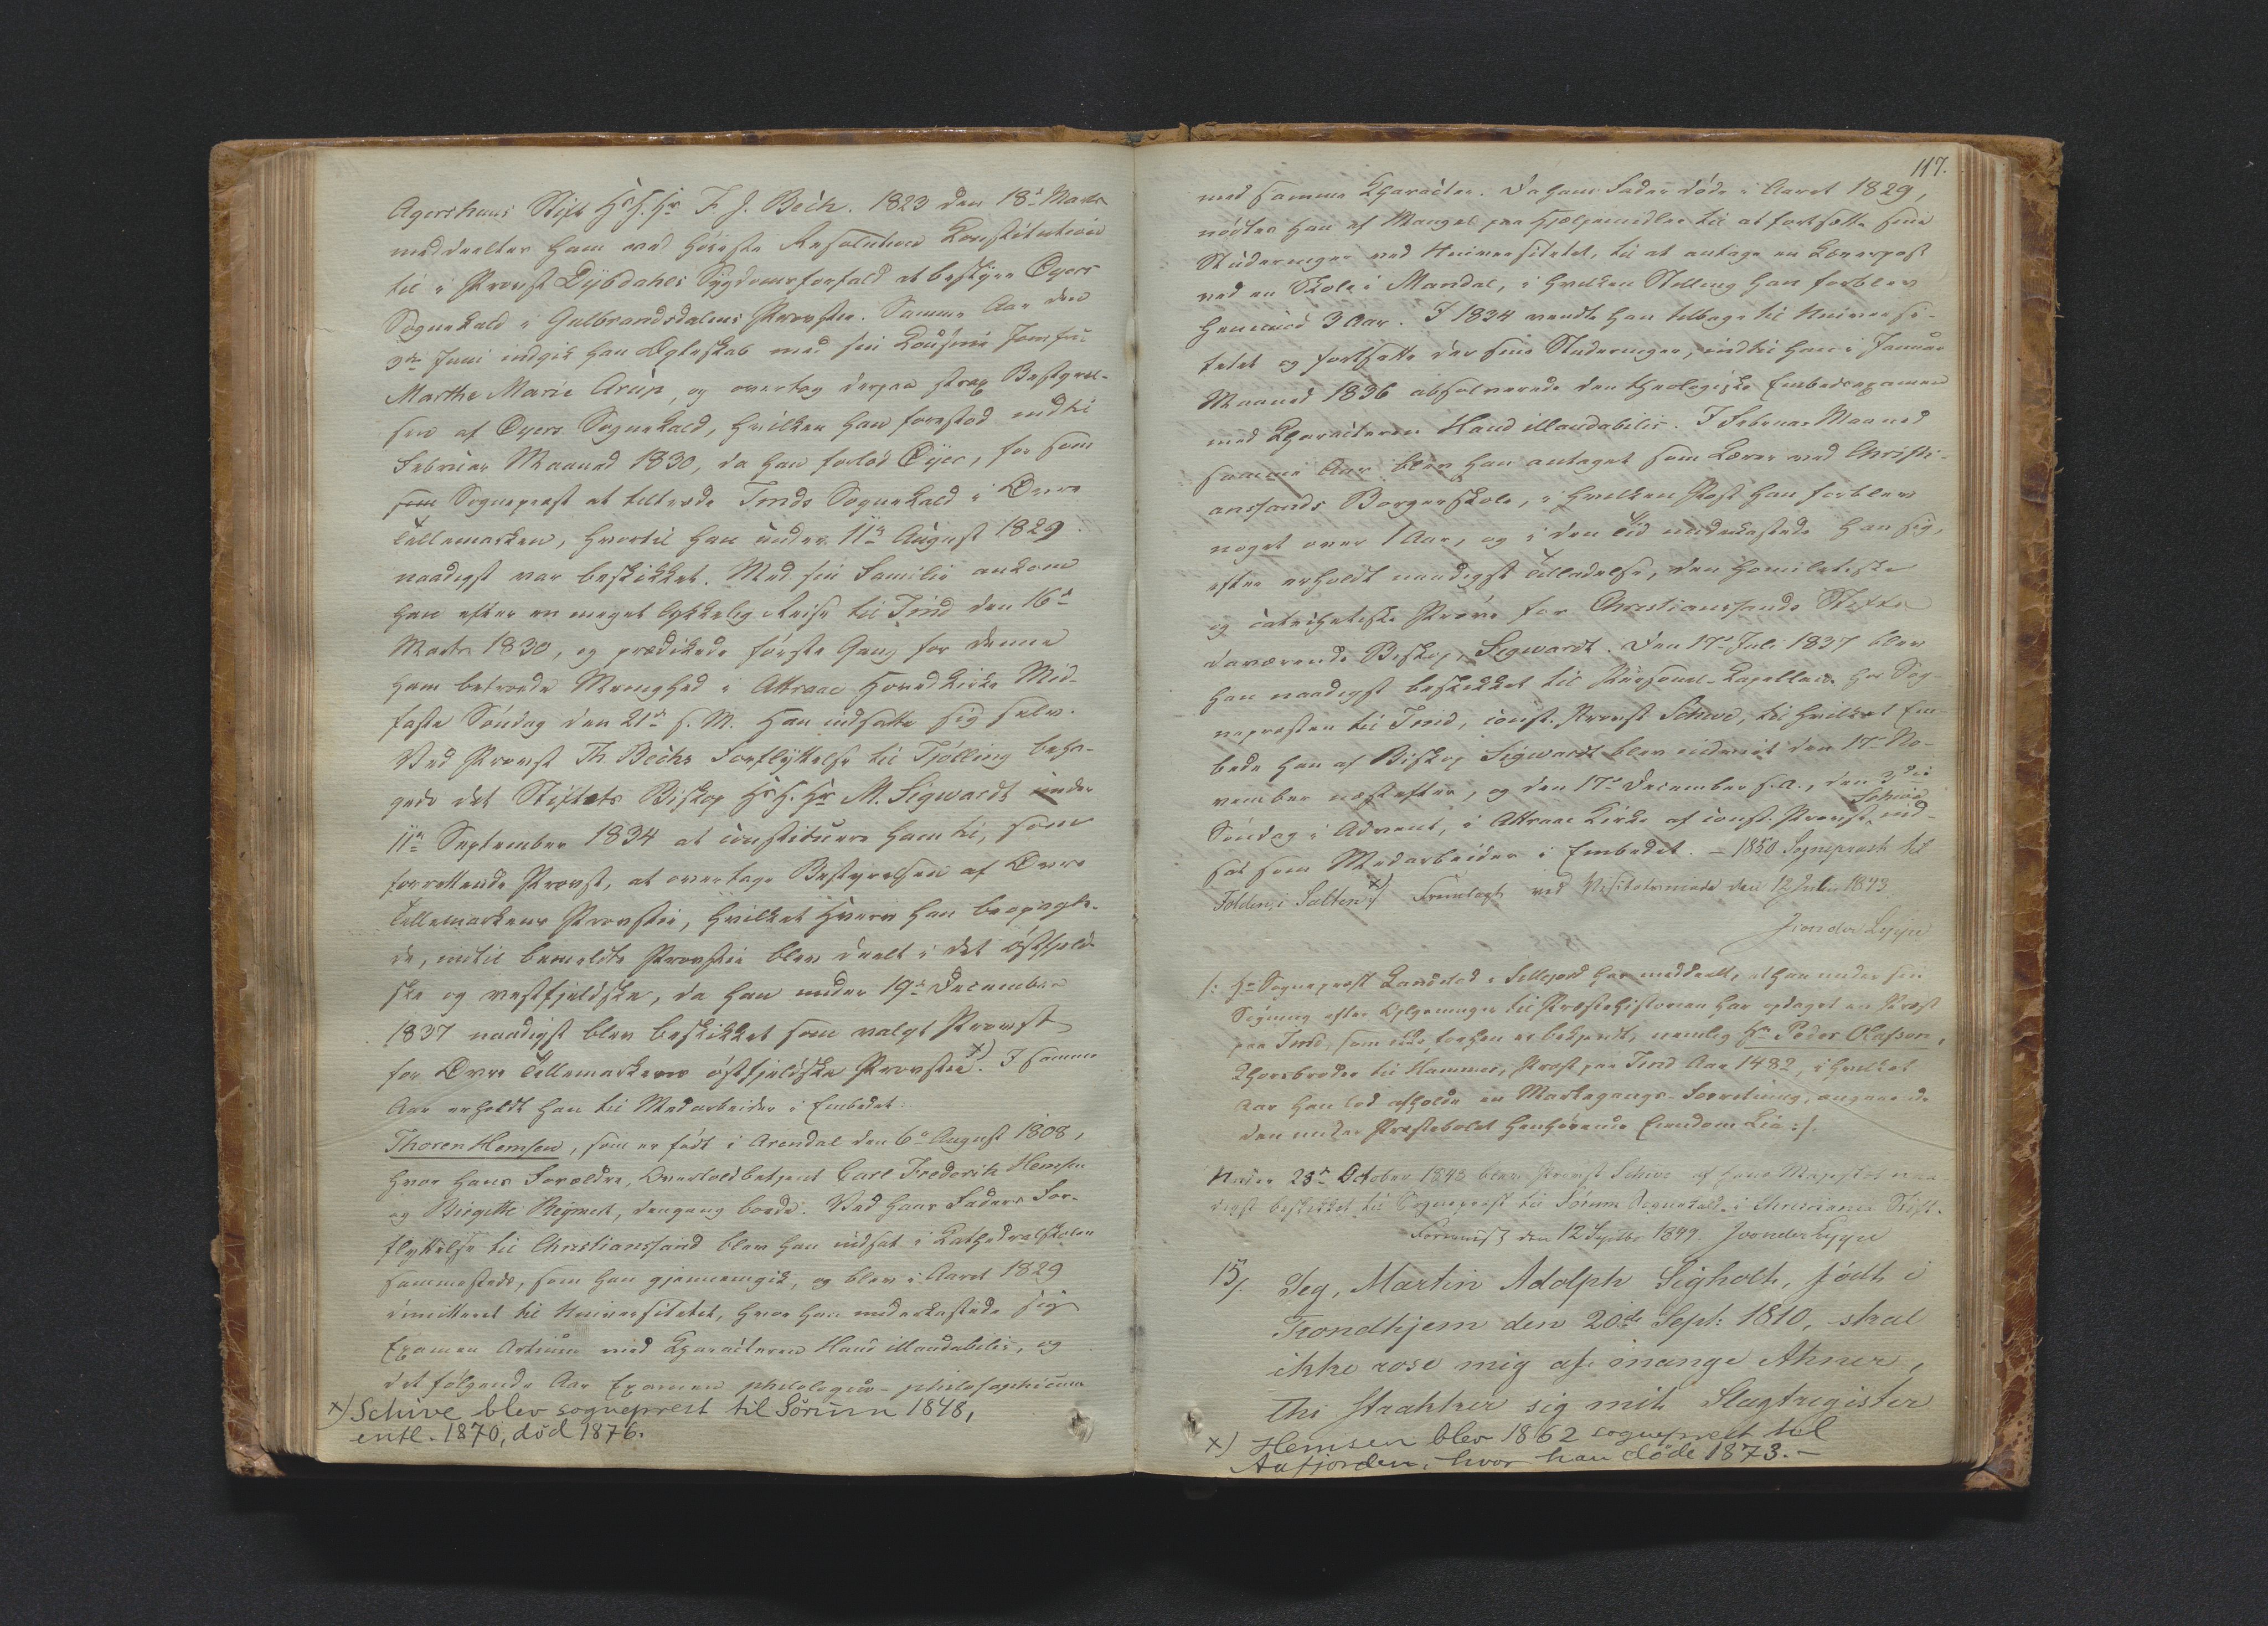 Agershuus Stift Hs H. Hr F. J. Bech. 1823 den 18d Marts
meddeeltes ham ved høieste Resolution Constitution
til i Provst Dybdahls Sygdomsforfald at bestyre Øyers
Sognekald i Gulbrandsdalens Provstie. Samme Aar den
3die Juni indgik han Ægteskab med sin Cousine Jomfru
Marthe Marie Arup, og overtog derpaa strax Bestyrel-
sen af Øyers Sognekald, hvilken han forestod indtil
Februar Maaned 1830, da han forlod Øyer, for som
som Sognepræst at tiltræde Tinds Sognekald i Øvre
Tellemarken, hvortil han under 11te August 1829
naadigst var beskikket. Med sin Familie ankom
han efter en meget lykkelig Reise til Tind den 16d
Marts 1830, og prædikede første Gang for denne
ham betroede Menighed i Attraae Hovedkirke Mid-
faste Søndag den 21de s. M. Han indsatte sig selv.
Ved Provst Th. Bechs Forflyttelse til Tjølling beha-
gede det Stiftets Biskop Hs H. Hr M. Sigwardt under
11te September 1834 at constituere ham til, som
forrettende Provst, at overtage Bestyrelsen af Øvre
Tellemarkens Provstie, hvilket Hverv han besørge-
de, indtil bemeldte Provstie blev deelt i det østfjeld-
ske og vestfjeldske, da han under 19de December
1837 naadigst blev beskikket som valgt Provst
for Øvre Tellemarkens østfjeldske Provstie x). I samme
Aar erholdt han til Medarbeider i Embedet:
Thoren Hemsen, som er født i Arendal den 6te August 1808,
hvor hans Forældre, Overtoldbetjent Carl Frederik Hemsen
og Birgitte Reymert, dengang boede. Ved hans Faders For-
flyttelse til Christianssand blev han indsat i Cathedralskolen
sammesteds, som han gjennemgik, og blev i Aaret 1829
dimitteret til Universitetet, hvor han underkastede sig
Examen Artium med Characteren Haud illaudabilis, og
det følgende Aar Examen philologico-philosophicum
x) Schive blev sogneprest til Sørum 1848,
entl. 1870, død 1876.
117.
med samme Character. Da hans Fader døde i Aaret 1829,
nødtes han af Mangel paa Hjælpemidler til at fortsætte sine
Studeringer ved Universitetet, til at antage en Lærerpost
ved en Skole i Mandal, i hvilken Stilling han forblev
henimod 3 Aar. I 1834 vendte han tilbage til Universi-
tetet og fortsatte der sine Studeringer, indtil han i Januar
Maaned 1836 absolverede den theologiske Embedsexamen
med Characteren Haud illaudabilis. I Februar Maaned
samme Aar blev han antaget som Lærer ved Christi-
anssands Borgerskole, i hvilken Post han forblev
noget over 1 Aar, og i den Tid underkastede han sig,
efter erholdt naadigst Tilladelse, den homiletiske
og catechetiske Prøve for Christianssands Stifts
daværende Biskop, Sigwardt. Den 17de Juli 1837 blev
han naadigst beskikket til Personel-Capellan hos Sog-
nepræsten til Tind, const. Provst Schive, til hvilket Em-
bede han af Biskop Sigwardt blev indviet den 17de No-
vember næstefter, og den 17de December s. a., den 3die
Søndag i Advent, i Attraae Kirke af const. Provst Schive ind-
sat som Medarbeider i Embedet. – 1850 Sogneprest til
Folden i Salten x) Fremlagt ved Visitatsmøde den 12 Julii 1843
J von der Lippe
/: Hr Sognepræst Landstad i Sillejord har meddeelt, at han under sin
Søgning efter Oplysninger til Præstehistorien har opdaget en Præst
paa Tind, som ikke forhen er bekjendt, nemlig Hr Peder Olafson,
Chorsbroder til Hammer, Præst paa Tind Aar 1482, i hvilket
Aar han lod afholde en Markegangs-Forretning, angaaende
den under Præstebolet henhørende Eiendom Lia :/.
Under 28de October 1848 blev Provst Schive af Hans Majestæt naa-
digst beskikket til Sognepræst til Sørum Sognekald i Christiania Stift.
Forevist den 12 Septbr 1849. J von der Lippe
15/. Jeg, Martin Adolph Sigholt, født i
Trondhjem den 20de Sept: 1810, skal
ikke rose mig af mange Ahner,
thi strækker sig mit Slægtregister
x) Hemsen blev 1862 sogneprest til
Aafjorden, hvor han døde 1873. –